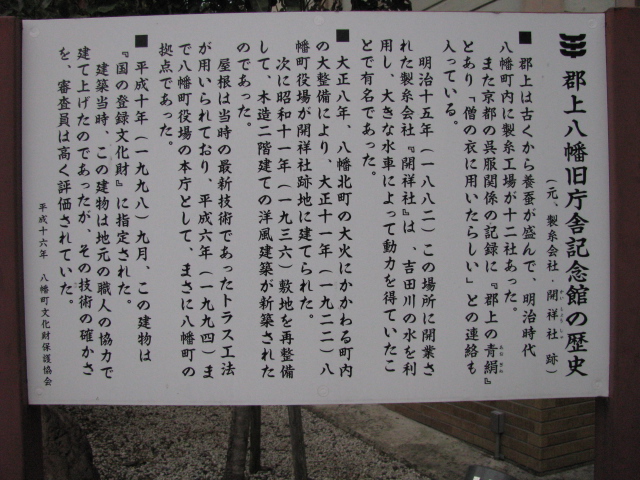 郡上八幡旧庁舎記念館の歴史
(元、製糸会社・開祥社 跡)
かい しょうしゃ
■ 郡上は古くから養蚕が盛んで、明治時代
八幡町内に製糸工場が十二社あった。
また京都の呉服関係の記録に『郡上の青絹』
あお ぎぬ
とあり「僧の衣に用いたらしい」との連絡も
入っている。
明治十五年(一八八二)この場所に開業さ
れた製糸会社『開祥社』は、吉田川の水を利
用し、大きな水車によって動力を得ていたこ
とで有名であった。
■ 大正八年、八幡北町の大火にかかわる町内
の大整備により、大正十一年(一九二二)八
幡町役場が開祥社跡地に建てられた。
次に昭和十一年(一九三六)敷地を再整備
して、木造二階建ての洋風建築が新築された
のであった。
屋根は当時の最新技術であったトラス工法
が用いられており、平成六年(一九九四)ま
で八幡町役場の本庁として、まさに八幡町の
拠点であった。
■ 平成十年(一九九八)九月、この建物は
『国の登録文化財』に指定された。
建築当時、この建物は地元の職人の協力で
建て上げたのであったが、その技術の確かさ
を、審査員は高く評価されていた。
平成十六年 八幡町文化財保護協会